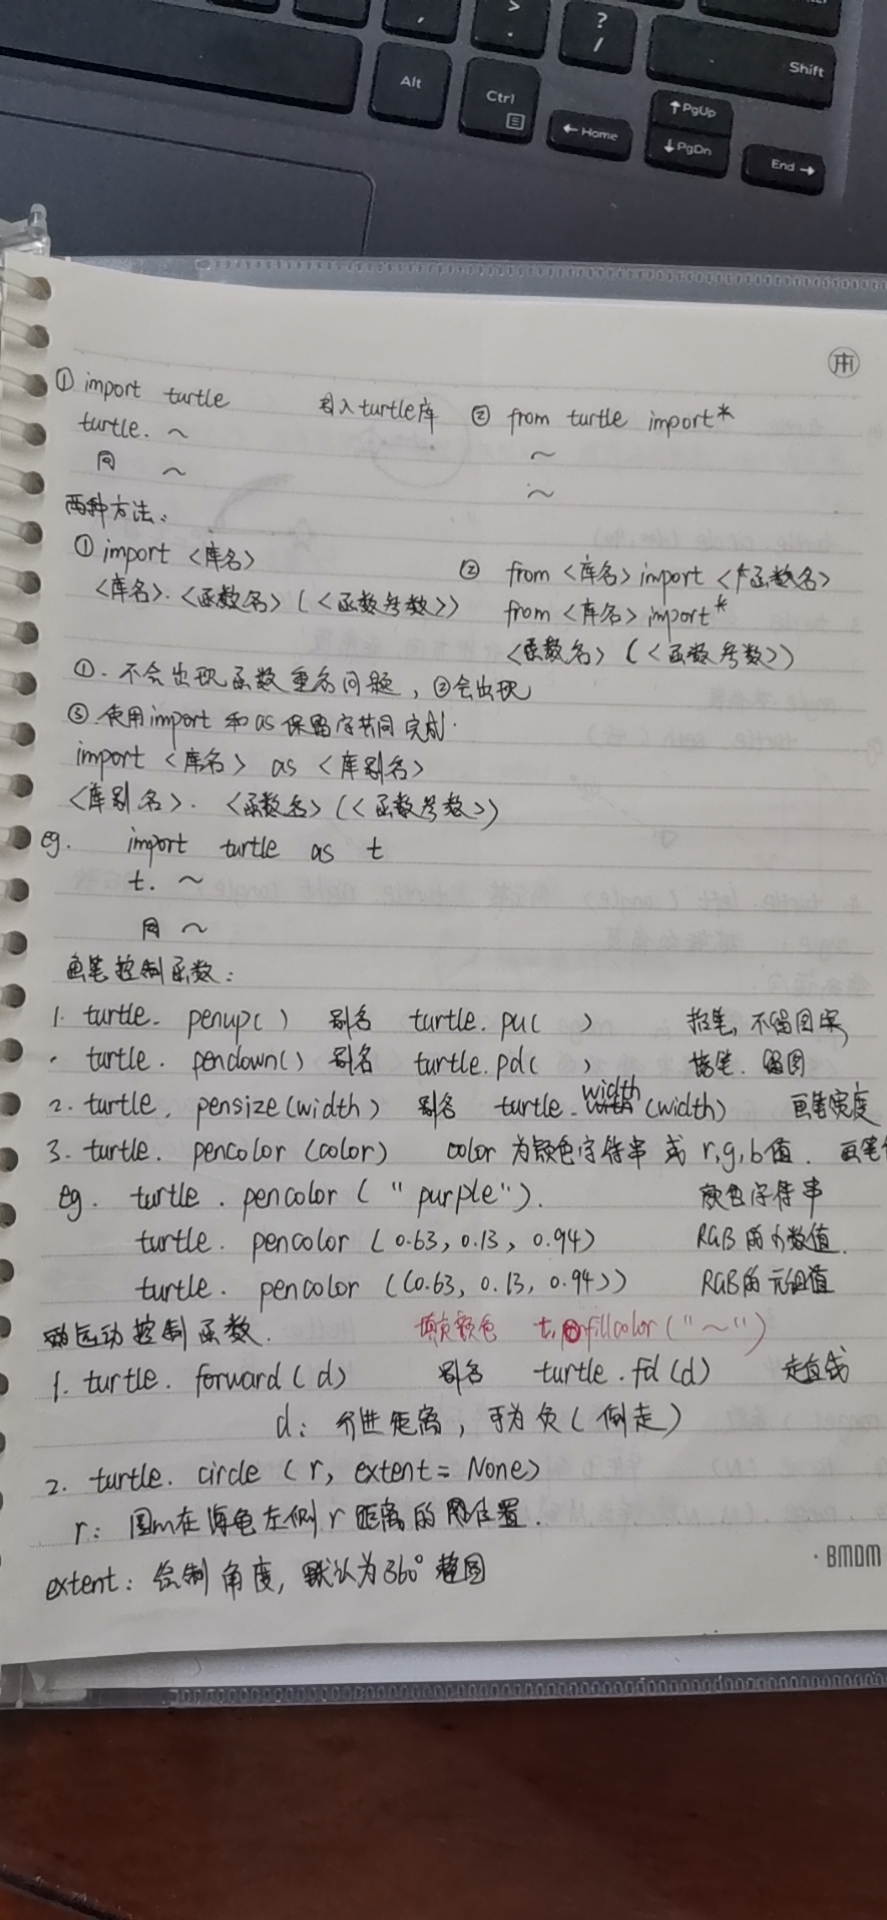 Alt
Ctrl
Shift
PgUp
Home
PgDn
End
① import turtle 引入turtle库 ② from turtle import*
turtle. ~ ~
同 ~ ~
两种方法:
① import <库名> ② from <库名> import <函数名>
<库名>. <函数名>(<函数参数>) from <库名> import*
<函数名>(<函数参数>)
①. 不会出现函数重名问题, ②会出现
③. 使用import 和 as 保留字共同完成.
import <库名> as <库别名>
<库别名>. <函数名>(<函数参数>)
eg. import turtle as t
t. ~
同 ~
画笔控制函数:
1. turtle. penup() 别名 turtle. pu( ) 抬笔, 不留图案
· turtle. pendown() 别名 turtle. pd( ) 落笔. 留图
2. turtle. pensize(width) 别名 turtle. width (width) 画笔宽度
3. turtle. pencolor (color) color 为颜色字符串 或 r,g,b值. 画笔
eg. turtle. pencolor ("purple"). 颜色字符串
turtle. pencolor (0.63, 0.13, 0.94) RGB的小数值.
turtle. pencolor ((0.63, 0.13, 0.94)) RGB的元组值
运动控制函数. 填充颜色 t. fillcolor ("~")
1. turtle. forward(d) 别名 turtle. fd(d) 走直线
d: 行进距离, 可为负(倒走)
2. turtle. circle (r, extent = None)
r: 圆心在海龟左侧 r 距离的位置.
extent: 绘制角度, 默认为360° 整圆
· BMDM